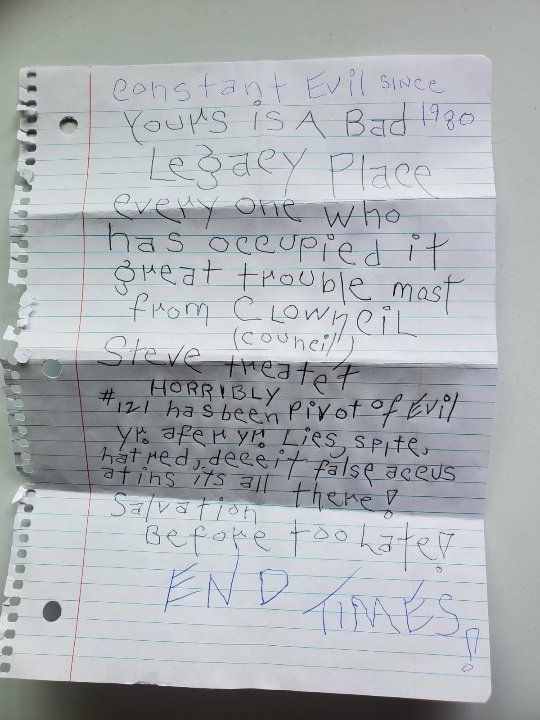 constant Evil SINCE
1980
Yours is A Bad
Legacy Place
every one who
has occupied it
great trouble most
from CLOWNCIL
(council)
Steve treated
HORRIBLY
#121 has been Pivot of Evil
yr. afer yr. Lies, spite,
hatred, deceit false accus
ations its all there!
Salvation
Before too Late!
END TIMES!